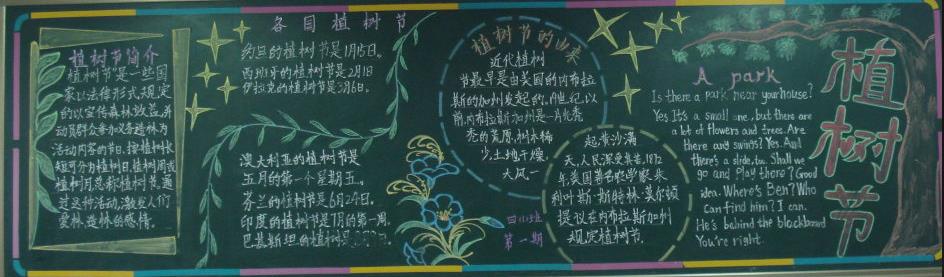 植树节简介
植树节是一些国
家以法律形式规定
的以宣传森林效益,并
动员群众参加义务造林为
活动内容的节日。按植树长
短可分为植树日、植树周或
植树月,总称植树节。通
过这种活动,激发人们
爱林、造林的感情。
各国植树节
约旦的植树节是1月15日。
西班牙的植树节是2月1日
伊拉克的植树节是3月6日。
澳大利亚的植树节是
五月的第一个星期五。
芬兰的植树节是6月24日。
印度的植树节是7月的第一周,
巴基斯坦的植树是
植树节的由来
近代植树
节最早是由美国的内布拉
斯的加州发起的。19世纪以
前,内布拉斯加州是一片光秃
秃的荒原,树木稀
少,土地干燥,
大风一
起黄沙满
天,人民深受其苦。1872
年,美国著名农学家朱
利叶斯·斯特林·莫尔顿
提议在内布拉斯加州
规定植树节
四(1)班
第一期
A park
Is there a park near your house?
Yes It's a small one, but there are
a lot of flowers and trees. Are
there any swings? Yes. And
there's a slide, too. Shall we
go and Play there? Good
idea. Where's Ben? Who
can find him? I can.
He's behind the blackboard
You're right.
植
树
节